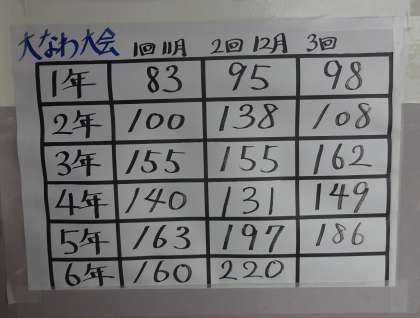 大なわ大会 1回11月 2回12月 3回
1年 83 95 98
2年 100 138 108
3年 155 155 162
4年 140 131 149
5年 163 197 186
6年 160 220